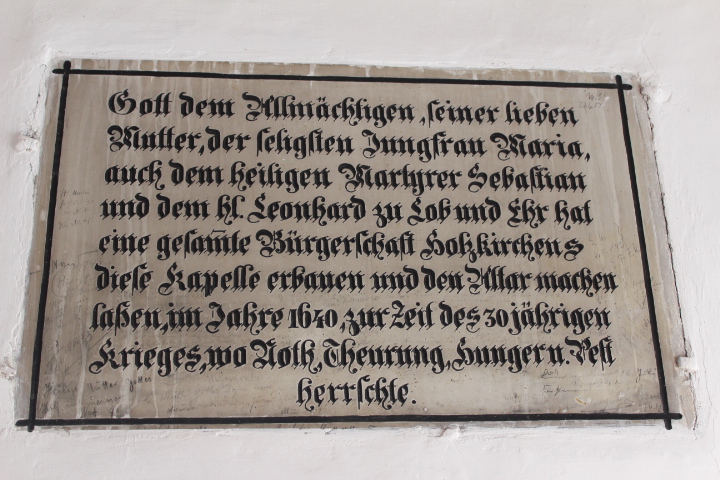 Gott dem Allmächtigen, seiner lieben
Mutter, der seligsten Jungfrau Maria,
auch dem heiligen Martyrer Sebastian
und dem hl. Leonhard zu Lob und Ehr hat
eine gesam̄te Bürgerschaft Holzkirchens
diese Kapelle erbauen und den Altar machen
laßen, im Jahre 1640, zur Zeit des 30 jährigen
Krieges, wo Noth, Theurung, Hunger u. Pest
herrschte.